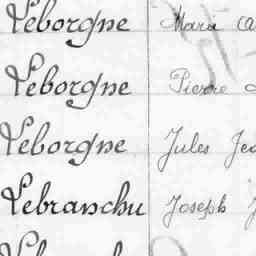 Leborgne Mara
Leborgne Pierre
Leborgne Jules
Lebranchu Joseph